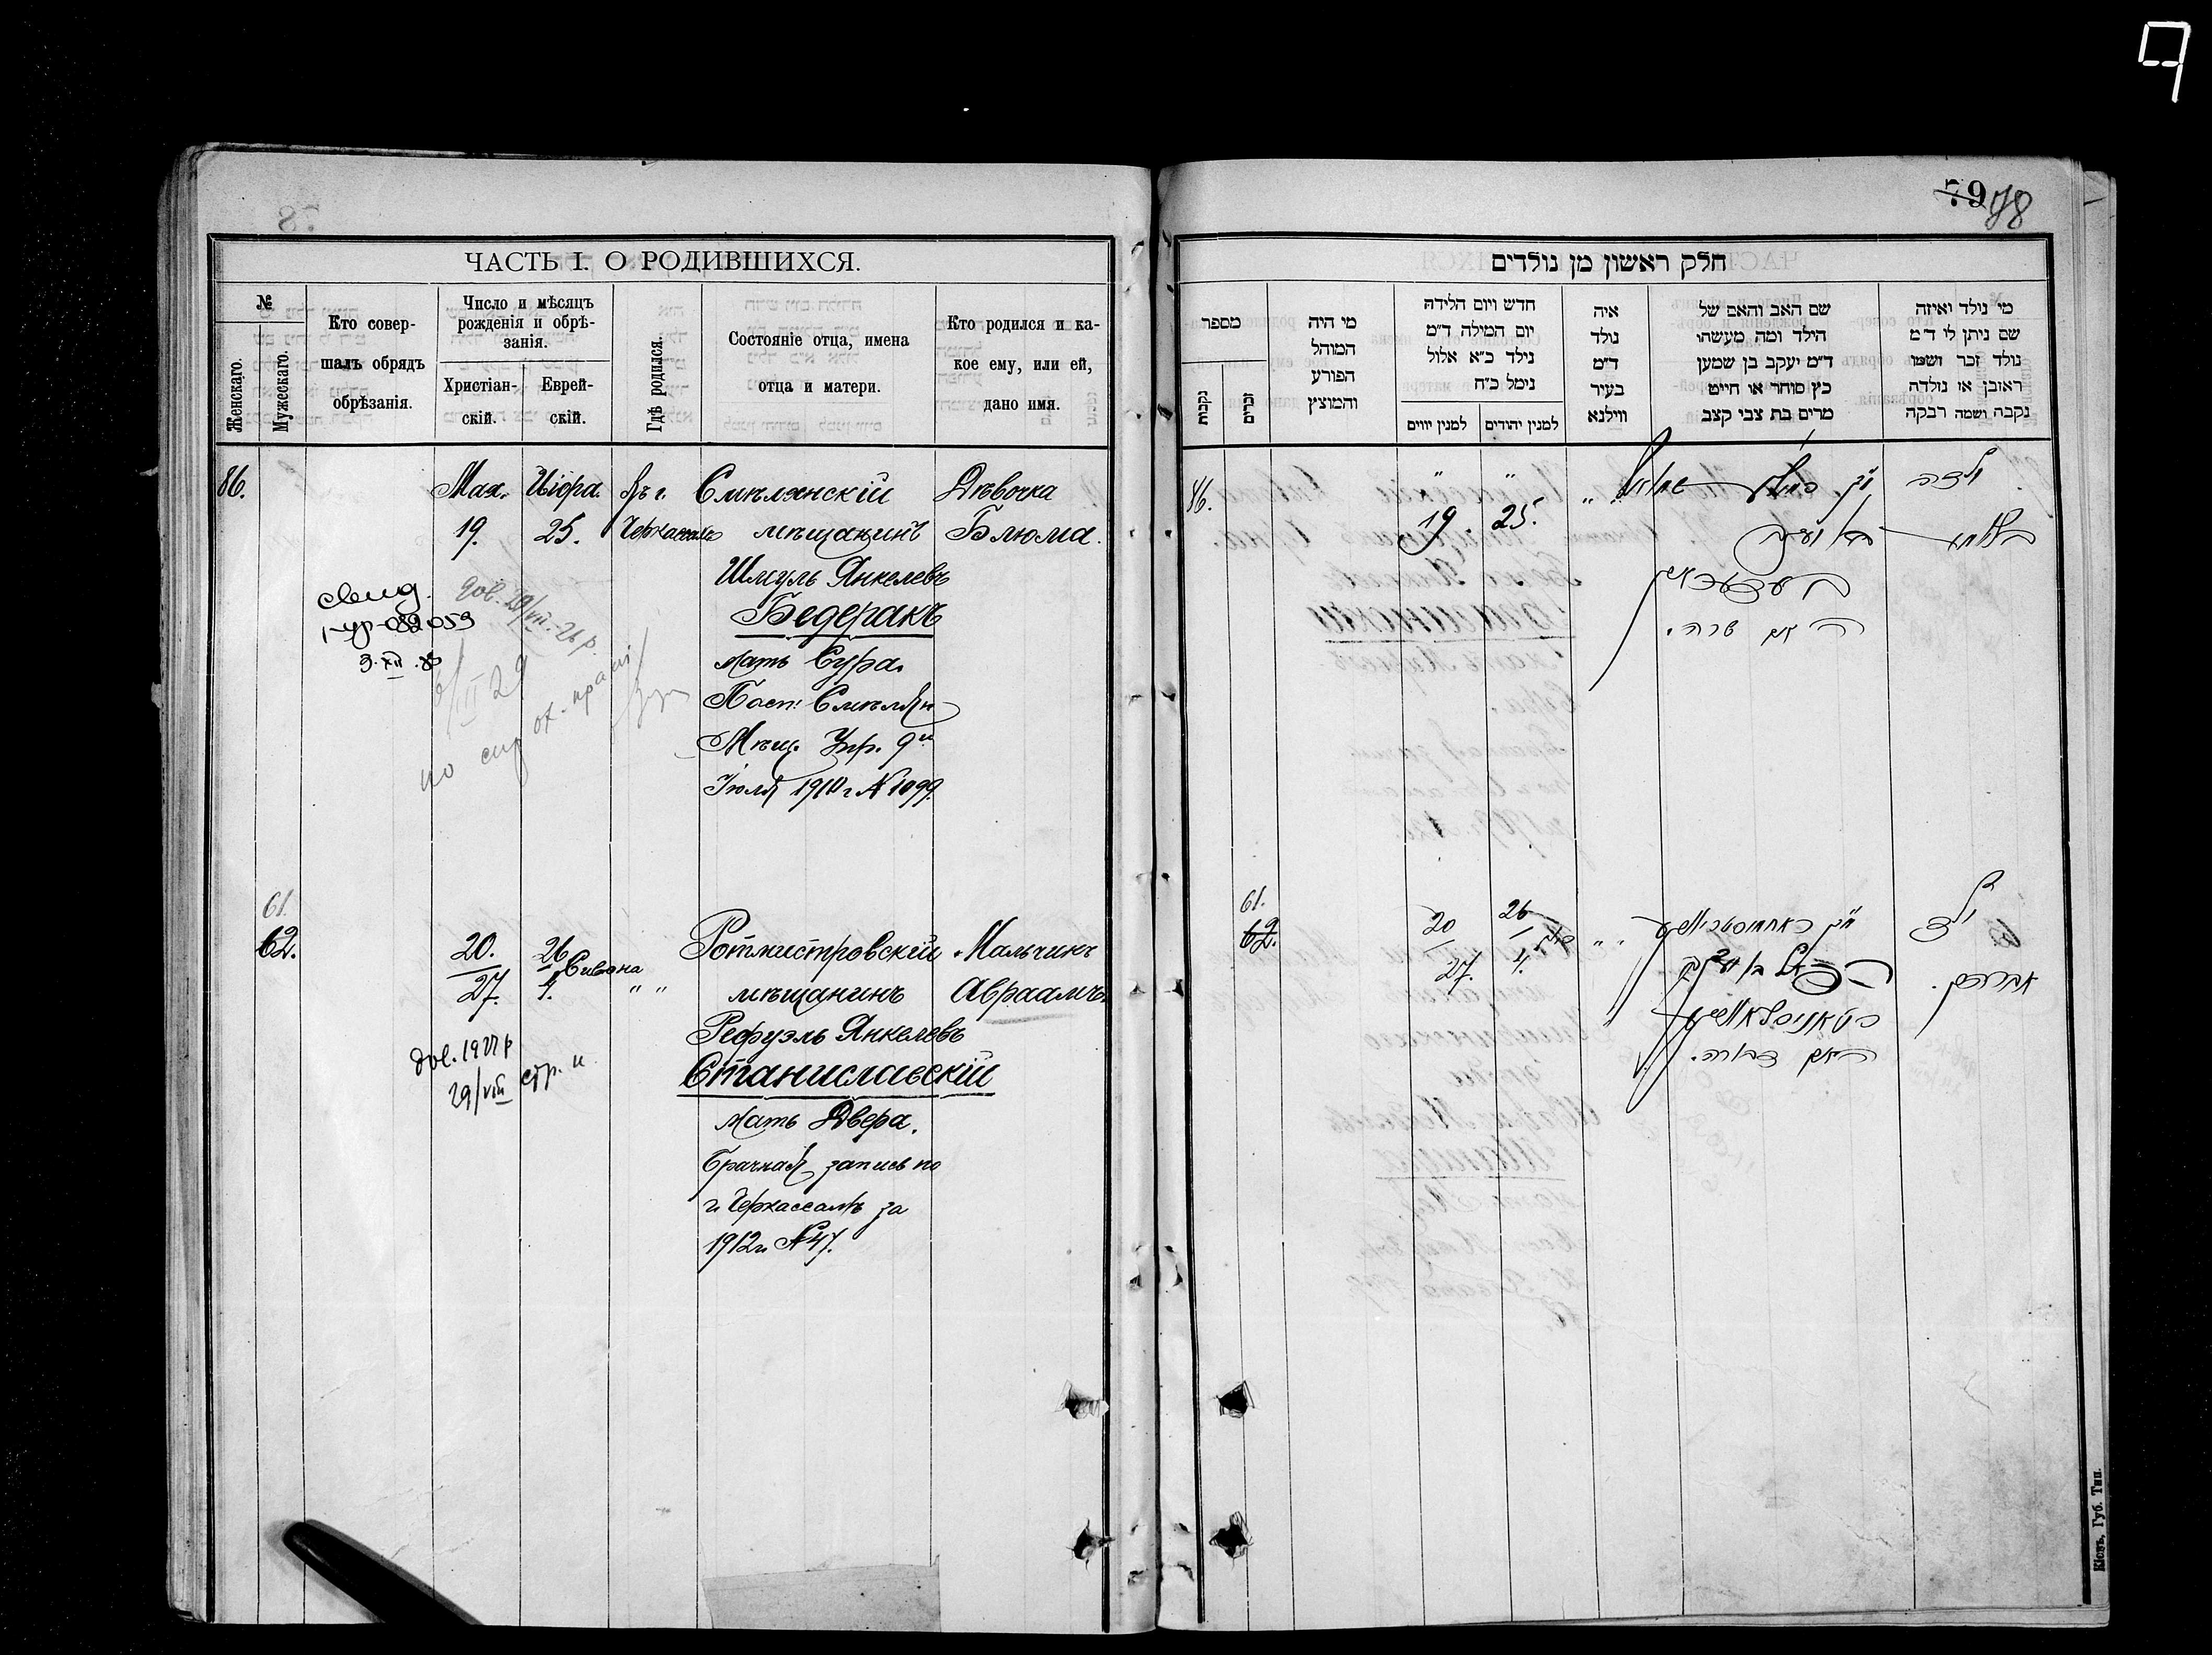 9
ЧАСТЬ I. О РОДИВШИХСЯ.
№
Женскаго.
Мужескаго.
Кто совер-
шалъ обрядъ
обрѣзанія.
Число и мѣсяцъ
рожденія и обрѣ-
занія.
Христіан-
скій.
Еврей-
скій.
Гдѣ родился.
Состояніе отца, имена
отца и матери.
Кто родился и ка-
кое ему, или ей,
дано имя.
86.
Мая.
19.
Иіфра.
25.
Въ г.
Черкассахъ
Смѣлянскій
мѣщанинъ
Шмуль Янкелевъ
Бедеракъ
мать Сура.
Пост. Смѣлян
Мѣщ. Упр. 9го
Іюля 1910 г. № 1099.
Дѣвочка
Блюма.
свид.
3.XII.
61.
62.
20.
27.
26
4. Сивана
" "
Ротмистровскій
мѣщанинъ
Рефуэль Янкелевъ
Станиславскій
мать Двера.
Брачная запись по
г. Черкассамъ за
1912 г. № 47.
Мальчикъ
Авраамъ.
дов. 1927 р
29/VIII стр. и
79 78
חלק ראשון מן נולדים
מספר
נקבות
זכרים
מי היה
המוהל
הפורע
והמוצץ
חדש ויום הלידה
יום המילה ד״מ
נילד כ״א אלול
נימל כ״ח
למנין יווים
למנין יהודים
איה
נולד
ד״מ
בעיר
ווילנא
שם האב והאם של
הילד ומה מעשהו
ד״מ יעקב בן שמען
כץ סוחר או חייט
מרים בת צבי קצב
מי נולד ואיזה
שם ניתן לו ד״מ
נולד זכר ושמו
ראובן או נולדה
נקבה ושמה רבקה
86.
" 19
" 25.
"
האם שרה.
ילדה
בלומא
61.
62.
20
27.
26
4. סיון
" "
רפאל בן יעקב
סטאניסלאווסקי
האם דבורה.
ילד
אברהם.
Кіевъ, Губ. Тип.